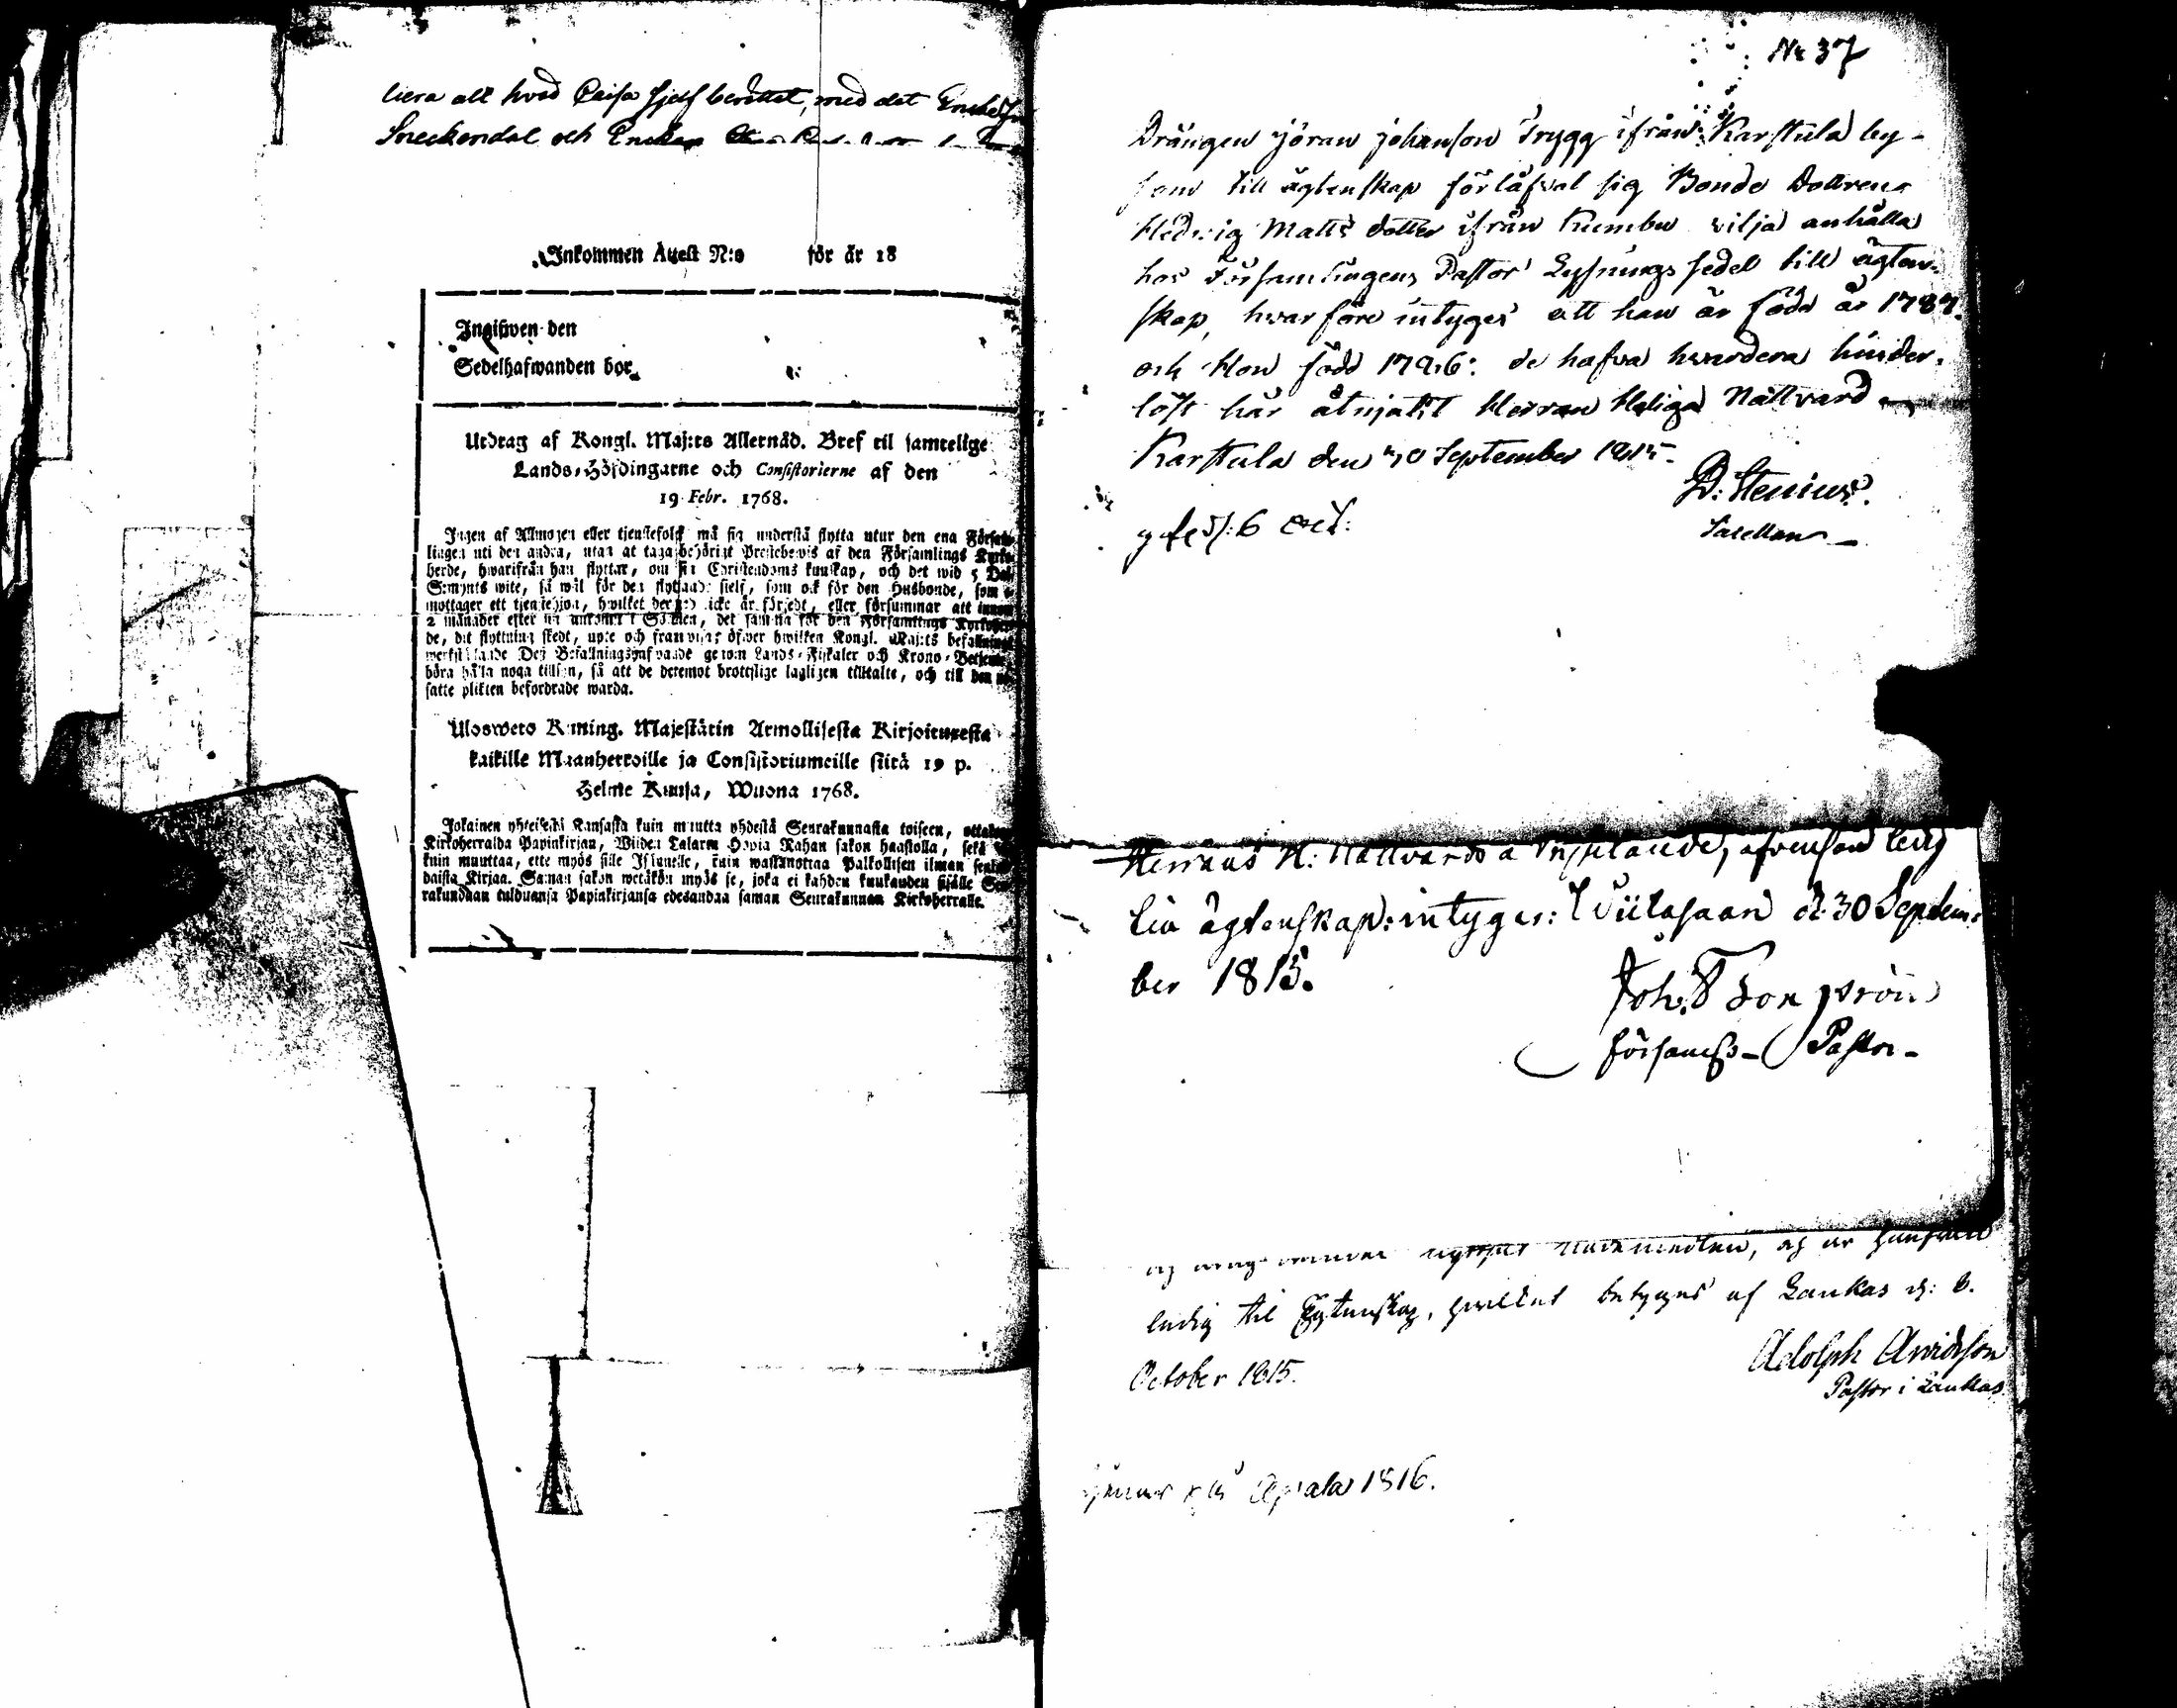 liera alt hvad Caisa sjelf berättat, med det Enskef
Sneckendal och Enskan
Inkommen Attest N:o för år 18
Ingifwen den
Sedelhafwanden bor
Utdrag af Kongl. Maj:ts Allernåd. Bref til samtelige
Lands-Höfdingarne och Consistorierne af den
19 Febr. 1768.
Ingen af Allmogen eller tjenstefolck må sig understå flytta utur den ena Församlingen
lingen uti den andra, utan at taga behörigt Prestebewis af den Församlings Kyrko-
herde, hwarifrån han flyttar, om sin Christendoms kunskap, och det wid 5 Dal.
S:mynts wite, så wäl för den flyttande sielf, som ock för den Husbonde, som e
mottager ett tjenstehjon, hwilket dermed icke är försedt, eller försummar att innom
2 månader efter sin ankomst i Socknen, det samma för den Församlings Kyrkoher-
de, dit flyttning skedt, upte och framwisa; öfwer hwilken Kongl. Maj:ts befallning
werkställande Desz Befallningshafwande genom Lands-Fiskaler och Krono-Betjente
böra hålla noga tillsyn, så att de deremot brottslige lagligen tilltalte, och till den
satte plikten befordrade warda.
Uloswets Kuning. Majestätin Armollisesta Kirjoituxesta
kaikille Maanherroille ja Consistoriumeille siitä 19 p.
Helme Kuusa, Wuona 1768.
Jokainen yhteisestä Kansasta kuin muutta yhdestä Seurakunnasta toiseen, ottakoon
Kirkoherralda Papinkirjan, Wijden Talarin Hopia Rahan sakon haastolla, sekä se
kuin muuttaa, ette myös sille Isännelle, kuin wastanottaa Palkollisen ilman senkal-
daista Kirjaa. Saman sakon wetäkön myös se, joka ei kahden kuukauden sisälle Seu-
rakundaan tulduansa Papinkirjansa edesandaa saman Seurakunnan Kirkoherralle.
No 37
Drängen Jöran Johanson Trygg ifrån Karstula by-
som till ägtenskap förlåfvat sig Bonde Dottren
Hedvig Matts dotter ifrån Kiembu vilja anhålla
hos Församlingens Pastor Lysnings sedel till ägten-
skap, hvarföre intyges att han är född år 1787.
och Hon född 1796: de hafva hvardera hinder-
löst här åtnjutit Herran Heliga Nattvard
Karstula den 30 September 1815.
D: Stenius.
Sacellan
d: 6 Oct:
Herrans H: Nattvards afvensom ledig
til ägtenskap: intygar: Wiitasaari d. 30 Septem-
ber 1815.
Joh.
Församl- Pastor-
ledig til Egtenskap, hvilket betyges af Laukas d: 8.
October 1815.
Adolph Arvidsson
Pastor i Laukas.
1816.